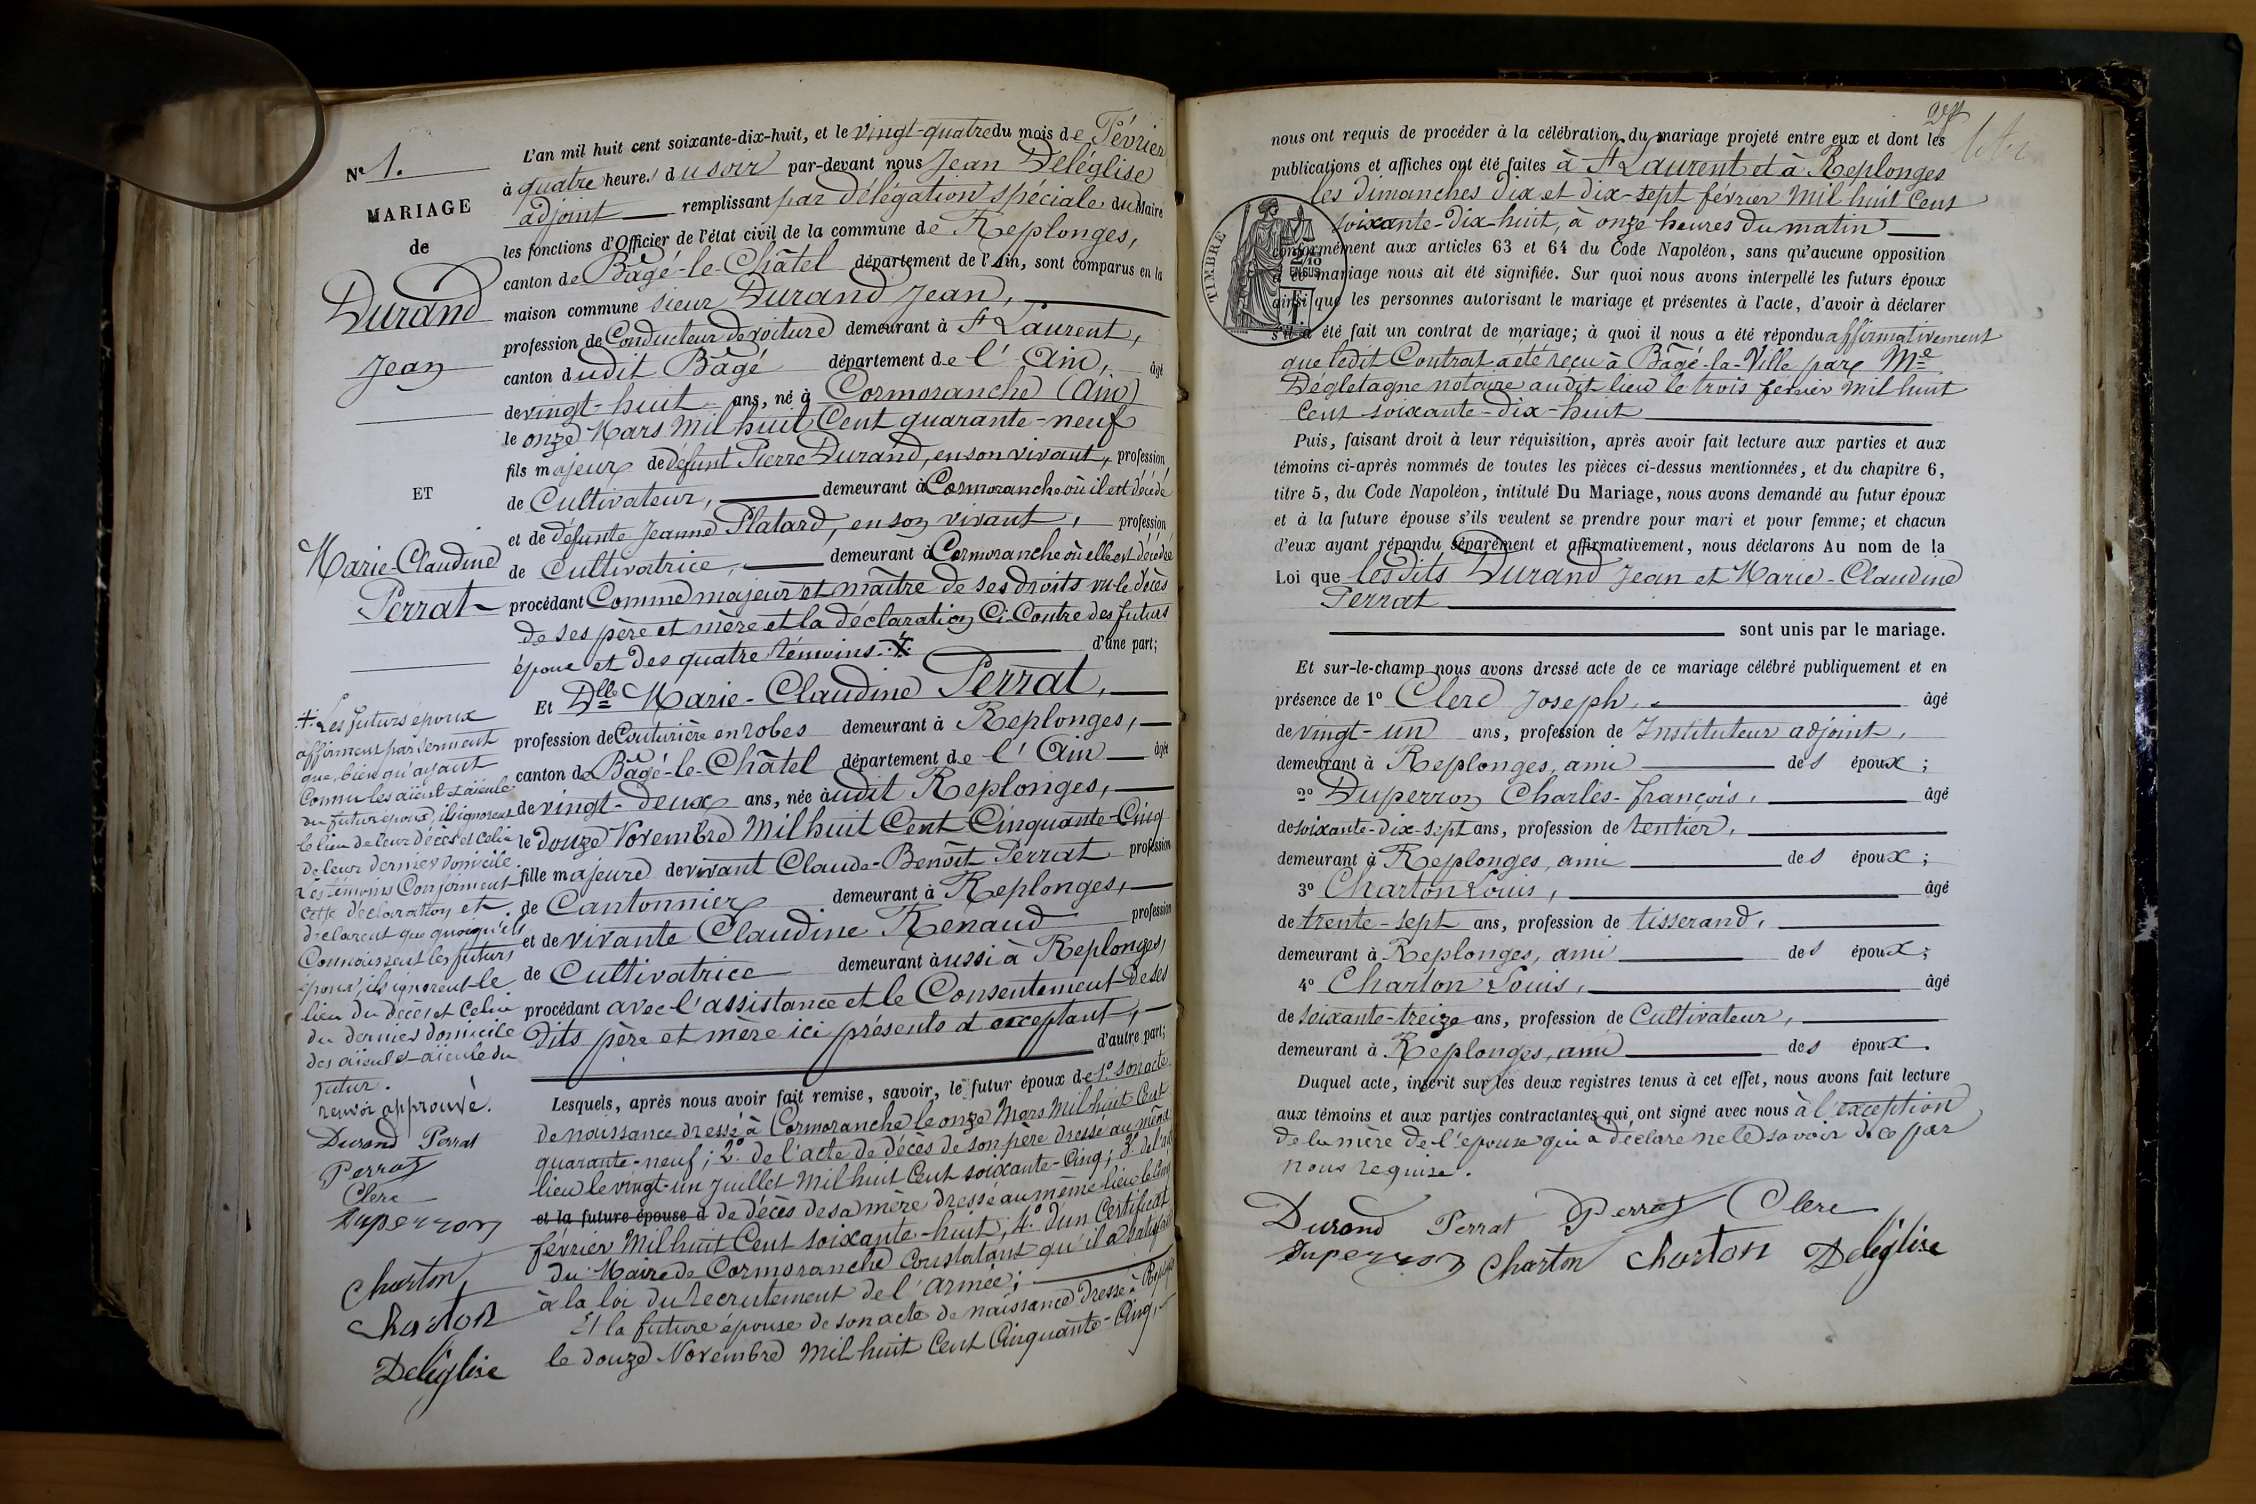 N° 1.
MARIAGE
de
Durand
Jean
ET
Marie-Claudine
Perrat
L'an mil huit cent soixante-dix-huit, et le vingt-quatre du mois de Février
à quatre heures du soir par-devant nous Jean Deléglise
adjoint remplissant par délégation spéciale du Maire
les fonctions d'Officier de l'état civil de la commune de Replonges,
canton de Bâgé-le-Châtel département de l'Ain, sont comparus en la
maison commune sieur Durand Jean,
profession de Conducteur de voiture demeurant à St Laurent,
canton dudit Bâgé département de l'Ain, âgé
de vingt-huit ans, né à Cormoranche (Ain)
le onze Mars mil huit Cent quarante-neuf
fils majeur de défunt Pierre Durand, en son vivant, profession
de Cultivateur, demeurant à Cormoranche où il est décédé
et de défunte Jeanne Platard, en son vivant, profession
de Cultivatrice, demeurant à Cormoranche où elle est décédée
procédant Comme majeur et maître de ses droits vu le décès
de ses père et mère et la déclaration Ci-Contre des futurs
époux et des quatre témoins .+. d'une part;
Et Dlle Marie-Claudine Perrat,
profession de Couturière en robes demeurant à Replonges,
canton de Bâgé-le-Châtel département de l'Ain âgée
de vingt-deux ans, née audit Replonges,
le douze Novembre Mil huit Cent Cinquante-Cinq
fille majeure de vivant Claude-Benoît Perrat profession
de Cantonnier demeurant à Replonges,
et de vivante Claudine Renaud profession
de Cultivatrice demeurant aussi à Replonges,
procédant avec l'assistance et le Consentement de ses
dits père et mère ici présents et acceptant,
d'autre part;
Lesquels, après nous avoir fait remise, savoir, le futur époux de 1° son acte
de naissance dressé à Cormoranche le onze Mars Mil huit Cent
quarante-neuf; 2° de l'acte de décès de son père dressé au même
lieu le vingt-un juillet Mil huit Cent soixante-Cinq; 3° de l'acte
et la future épouse d de décès de sa mère dressé au même lieu le
février Mil huit Cent soixante-huit; 4° d'un Certificat
du Maire de Cormoranche Constatant qu'il a satisfait
à la loi du recrutement de l'armée;
Et la future épouse de son acte de naissance dressé à Replonges
le douze Novembre Mil huit Cent Cinquante-Cinq,
.+. Les futurs époux
affirment par serment
que, bien qu'ayant
Connu les aïeul et aïeule
du futur époux, ils ignorent
le lieu de leur décès et celui
de leur dernier domicile.
Les témoins Confirment
cette déclaration et
déclarent que quoiqu'ils
Connaissent les futurs
époux, ils ignorent le
lieu du décès et Celui
du dernier domicile
des aïeul et aïeule du
futur.
renvoi approuvé.
Durand Perrat
Perrat
Clerc
Duperron
Charton
Charton
Deléglise
nous ont requis de procéder à la célébration du mariage projeté entre eux et dont les
publications et affiches ont été faites à St Laurent et à Replonges
les dimanches dix et dix-sept février Mil huit Cent
soixante-dix-huit, à onze heures du matin
conformément aux articles 63 et 64 du Code Napoléon, sans qu'aucune opposition
à ce mariage nous ait été signifiée. Sur quoi nous avons interpellé les futurs époux
ainsi que les personnes autorisant le mariage et présentes à l'acte, d'avoir à déclarer
s'il a été fait un contrat de mariage; à quoi il nous a été répondu affirmativement
que ledit Contrat a été reçu à Bâgé-la-Ville par Me
Degletagne notaire audit lieu le trois février Mil huit
Cent soixante-dix-huit
TIMBRE
2/10
EN SUS
Puis, faisant droit à leur réquisition, après avoir fait lecture aux parties et aux
témoins ci-après nommés de toutes les pièces ci-dessus mentionnées, et du chapitre 6,
titre 5, du Code Napoléon, intitulé Du Mariage, nous avons demandé au futur époux
et à la future épouse s'ils veulent se prendre pour mari et pour femme; et chacun
d'eux ayant répondu séparément et affirmativement, nous déclarons Au nom de la
Loi que lesdits Durand Jean et Marie-Claudine
Perrat
sont unis par le mariage.
Et sur-le-champ nous avons dressé acte de ce mariage célébré publiquement et en
présence de 1° Clerc Joseph, âgé
de vingt-un ans, profession de Instituteur adjoint,
demeurant à Replonges, ami des époux;
2° Duperron Charles-François, âgé
de soixante-dix-sept ans, profession de rentier,
demeurant à Replonges, ami des époux;
3° Charton Louis, âgé
de trente-sept ans, profession de tisserand,
demeurant à Replonges, ami des époux;
4° Charton Louis, âgé
de soixante-treize ans, profession de Cultivateur,
demeurant à Replonges, ami des époux.
Duquel acte, inscrit sur les deux registres tenus à cet effet, nous avons fait lecture
aux témoins et aux parties contractantes qui ont signé avec nous à l'exception
de la mère de l'épouse qui a déclaré ne le savoir de ce par
nous requise.
Durand Perrat Perrat Clerc
Duperron Charton Charton Deléglise